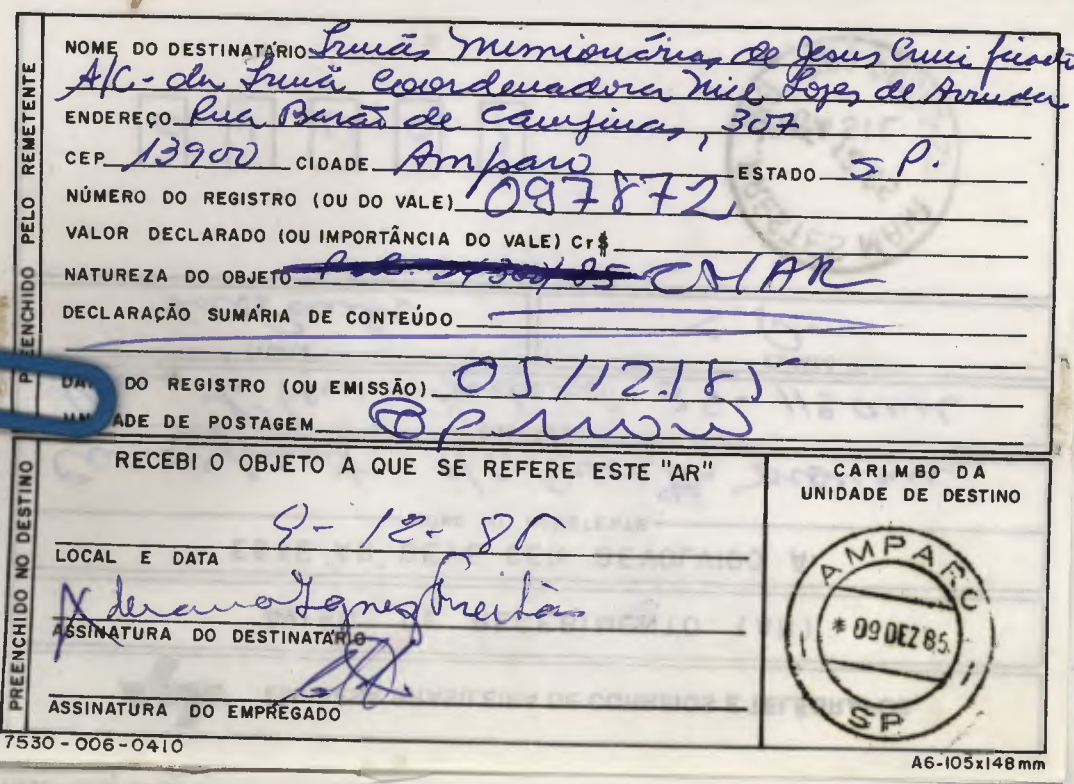 PREENCHIDO PELO REMETENTE
NOME DO DESTINATÁRIO Irmãs Missionárias de Jesus Crucificado
A/C - da Irmã Coordenadora Nice Lopes de Arruda
ENDEREÇO Rua Barão de Campinas, 307
CEP 13900 CIDADE Amparo ESTADO S P.
NÚMERO DO REGISTRO (OU DO VALE) 097872
VALOR DECLARADO (OU IMPORTÂNCIA DO VALE) Cr$
NATUREZA DO OBJETO AR
DECLARAÇÃO SUMÁRIA DE CONTEÚDO
DO REGISTRO (OU EMISSÃO) 05/12/85
ADE DE POSTAGEM
PREENCHIDO NO DESTINO
RECEBI O OBJETO A QUE SE REFERE ESTE "AR"
9-12-85
LOCAL E DATA
Freitas
ASSINATURA DO DESTINATÁRIO
ASSINATURA DO EMPREGADO
CARIMBO DA
UNIDADE DE DESTINO
AMPARO
* 09 DEZ 85
SP
7530-006-0410
A6-105x148mm